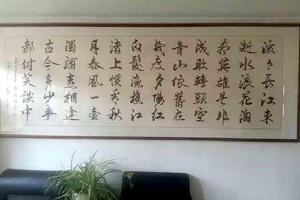 滚々長江東
逝水浪花淘
尽英雄是非
成敗轉頭空
青山依舊在
幾度夕陽紅
白髮漁樵江
渚上慣看秋
月春風一壺
濁酒喜相逢
古今多少事
都付笑談中